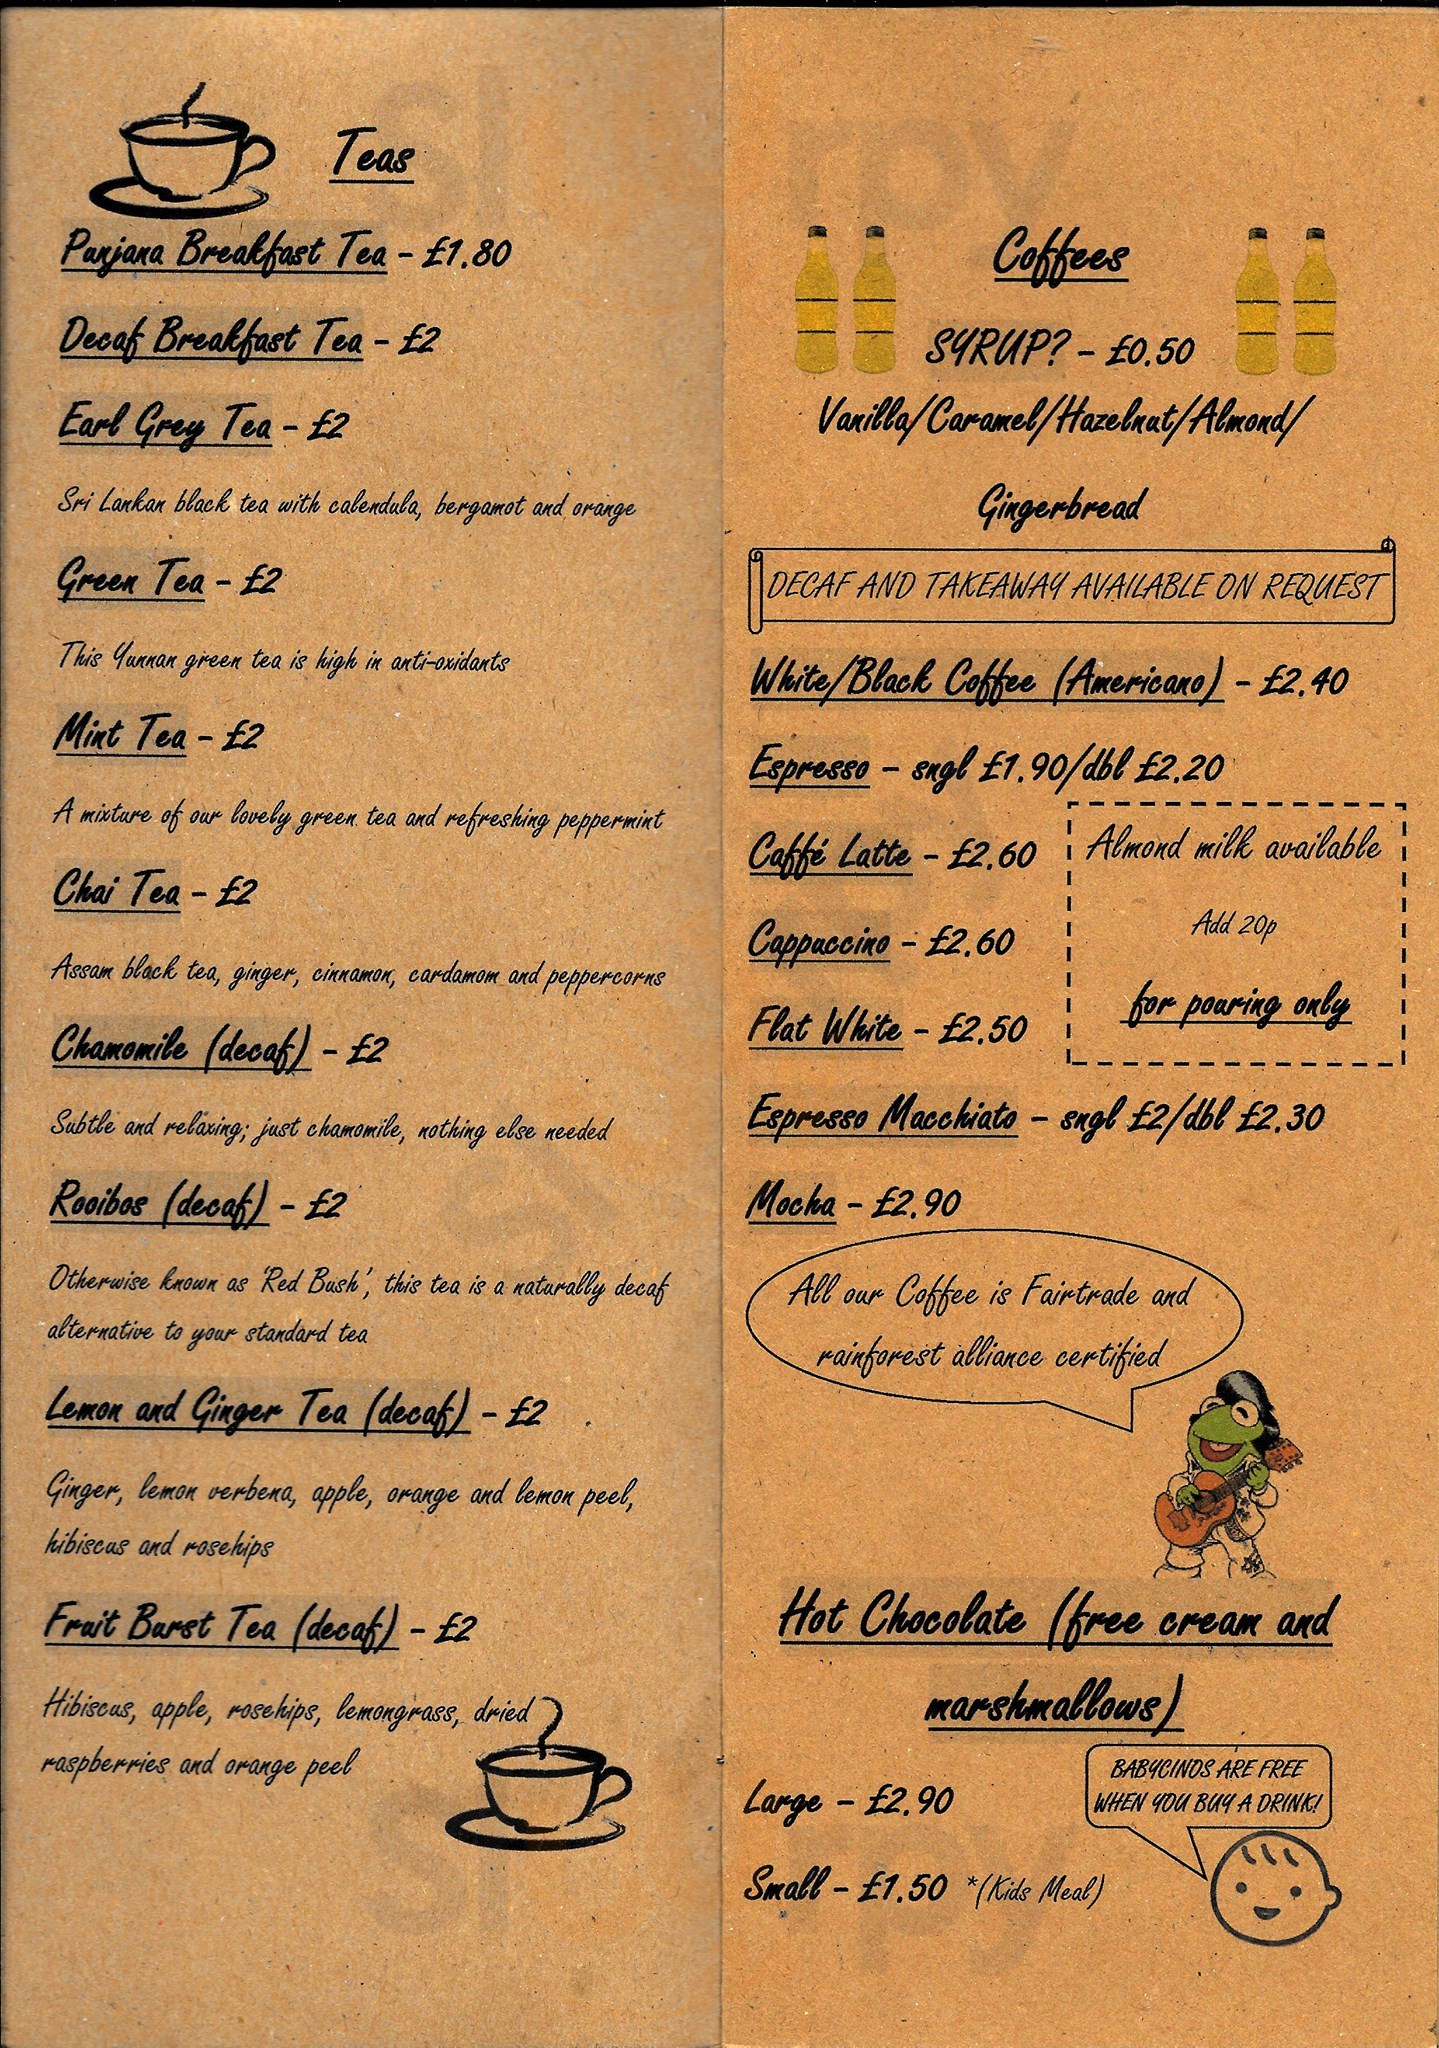 Teas
Punjana Breakfast Tea - £1.80
Decaf Breakfast Tea - £2
Earl Grey Tea - £2
Sri Lankan black tea with calendula, bergamot and orange
Green Tea - £2
This Yunnan green tea is high in anti-oxidants
Mint Tea - £2
A mixture of our lovely green tea and refreshing peppermint
Chai Tea - £2
Assam black tea, ginger, cinnamon, cardamom and peppercorns
Chamomile (decaf) - £2
Subtle and relaxing; just chamomile, nothing else needed
Rooibos (decaf) - £2
Otherwise known as 'Red Bush', this tea is a naturally decaf
alternative to your standard tea
Lemon and Ginger Tea (decaf) - £2
Ginger, lemon verbena, apple, orange and lemon peel,
hibiscus and rosehips
Fruit Burst Tea (decaf) - £2
Hibiscus, apple, rosehips, lemongrass, dried
raspberries and orange peel
Coffees
SYRUP? - £0.50
Vanilla/Caramel/Hazelnut/Almond/
Gingerbread
DECAF AND TAKEAWAY AVAILABLE ON REQUEST
White/Black Coffee (Americano) - £2.40
Espresso - sngl £1.90/dbl £2.20
Caffé Latte - £2.60
Cappuccino - £2.60
Flat White - £2.50
Almond milk available
Add 20p
for pouring only
Espresso Macchiato - sngl £2/dbl £2.30
Mocha - £2.90
All our Coffee is Fairtrade and
rainforest alliance certified
Hot Chocolate (free cream and
marshmallows)
Large - £2.90
Small - £1.50 *(Kids Meal)
BABYCINOS ARE FREE
WHEN YOU BUY A DRINK!